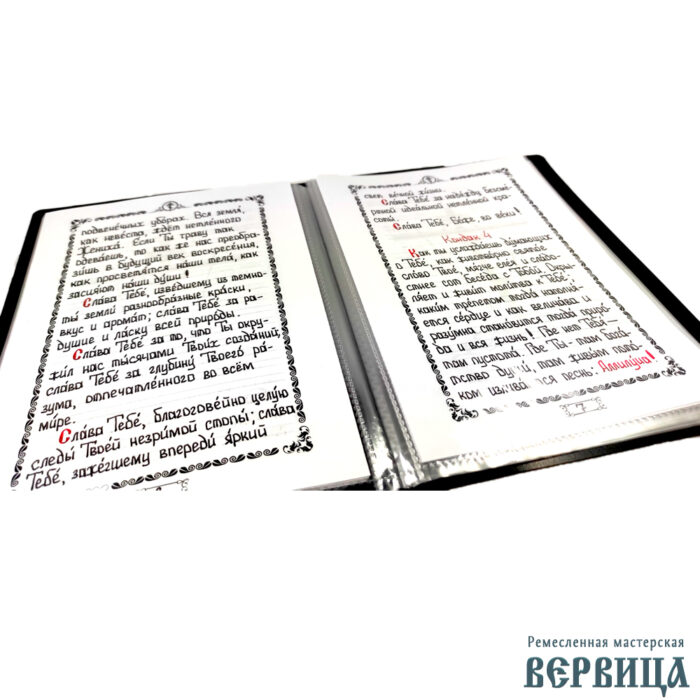 подвенечных уборах. Вся земля,
как невеста, ждёт нетленного
Жениха. Если Ты траву так
одеваешь, то как же нас преобра-
зишь в будущий век воскресения,
как просветятся на́ши тела, как
засияют на́ши ду́ши!
Сла́ва Тебе́, изве́дшему из темно-
ты́ земли́ разнообра́зные кра́ски,
вкус и арома́т; сла́ва Тебе́ за ра-
ду́шие и ла́ску всей приро́ды.
Сла́ва Тебе́ за то, что Ты окру-
жи́л нас ты́сячами Твои́х созда́ний,
сла́ва Тебе́ за глубину́ Твоего́ ра́-
зума, отпеча́тленного во всём
ми́ре.
Сла́ва Тебе́, благогове́йно целу́ю
следы́ Твое́й незри́мой стопы́; сла́ва
Тебе́, заже́гшему впереди́ я́ркий
свет ве́чной жи́зни.
Сла́ва Тебе́ за наде́жду бессме́-
ртной идеа́льной нетле́нной кра-
соты́.
Сла́ва Тебе́, Бо́же, во ве́ки!
Кондак 4
Как Ты услажда́ешь ду́мающих
о Тебе́, как животво́рно свято́е
сло́во Твое́, мя́гче еле́я и сла́до-
стнее сот бесе́да с Тобо́й. Окры-
ля́ет и живи́т моли́тва к Тебе́;
каки́м тре́петом тогда́ наполня́-
ется се́рдце и как велича́ва и
разу́мна стано́вится тогда́ приро́-
да и вся жизнь! Где нет Тебя́-
там пустота́. Где Ты- там бога́-
тство души́, там живы́м пото́-
ком излива́ется песнь: Аллилу́иа!
Ремесленная мастерская
ВЕРВИЦА